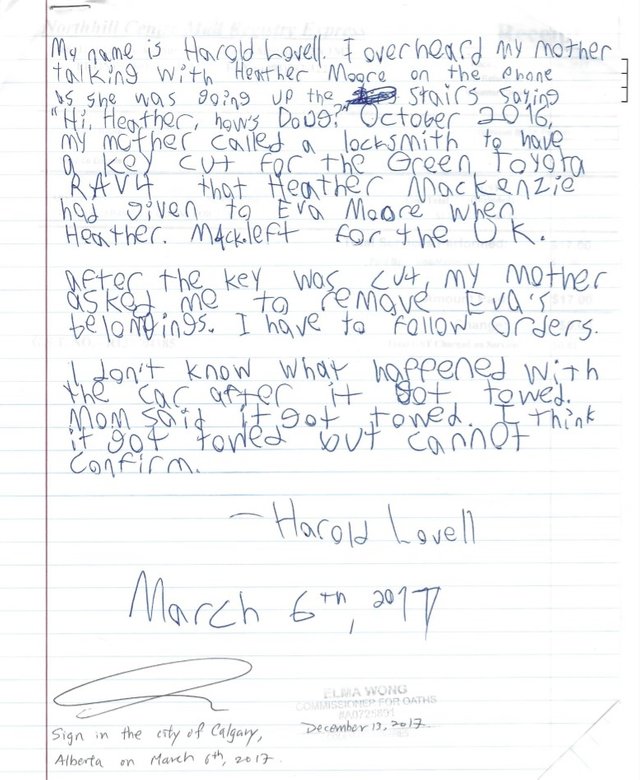 My name is Harold Lovell. I overheard my mother
talking with Heather Moore on the phone
as she was going up the stairs saying
"Hi, Heather, how's Doug?" October 2016,
my mother called a locksmith to have
a key cut for the Green Toyota
RAV4 that Heather Mackenzie
had given to Eva Moore when
Heather. Mack.left for the UK.
after the key was cut, my mother
asked me to remove Eva's
belongings. I have to follow orders.
I don't know what happened with
the car after it got towed.
Mom said it got towed. I think
it got towed but cannot
confirm.
— Harold Lovell
March 6th, 2017
ELMA WONG
COMMISSIONER FOR OATHS
#A0725891
December 13, 2017
Sign in the city of Calgary,
Alberta on March 6th, 2017.